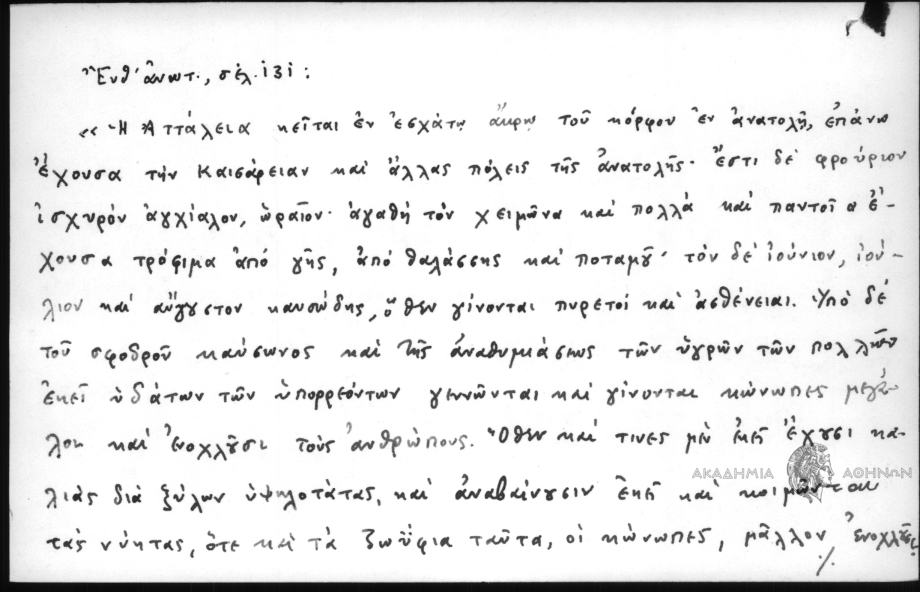 Ἔνθ' ἀνωτ., σελ. 131:
«Ἡ Ἀττάλεια κεῖται ἐν ἐσχάτῳ ἄκρῳ τοῦ κόρφου ἐν ἀνατολῇ, ἐπάνω
ἔχουσα τὴν Καισάρειαν καὶ ἄλλας πόλεις τῆς ἀνατολῆς· ἔστι δὲ φρούριον
ἰσχυρόν ἀγχίαλον, ὡραῖον· ἀγαθὴ τὸν χειμῶνα καὶ πολλὰ καὶ παντοῖα ἔ-
χουσα τρόφιμα ἀπό γῆς, ἀπό θαλάσσης καὶ ποταμοῦ· τὸν δὲ ἰούνιον, ἰού-
λιον καὶ αὔγουστον καυσώδης, ὅθεν γίνονται πυρετοὶ καὶ ἀσθένειαι. Ὑπὸ δὲ
τοῦ σφοδροῦ καύσωνος καὶ τῆς ἀναθυμιάσεως τῶν ὑγρῶν τῶν πολλῶν
ἐκεῖ ὑδάτων τῶν ὑπορρεόντων γεννῶνται καὶ γίνονται κώνωπες μεγά-
λοι καὶ ἐνοχλοῦσι τοὺς ἀνθρώπους. Ὅθεν καὶ τινες μὲν ἐκεῖ ἔχουσι κα-
λιὰς διὰ ξύλων ὑψηλοτάτας, καὶ ἀναβαίνουσιν ἐκεῖ καὶ κοιμῶνται
τὰς νύκτας, ὅτε καὶ τὰ ζωΰφια ταῦτα, οἱ κώνωπες, μᾶλλον ἐνοχλοῦσι
./.
ΑΚΑΔΗΜΙΑ ΑΘΗΝΩΝ